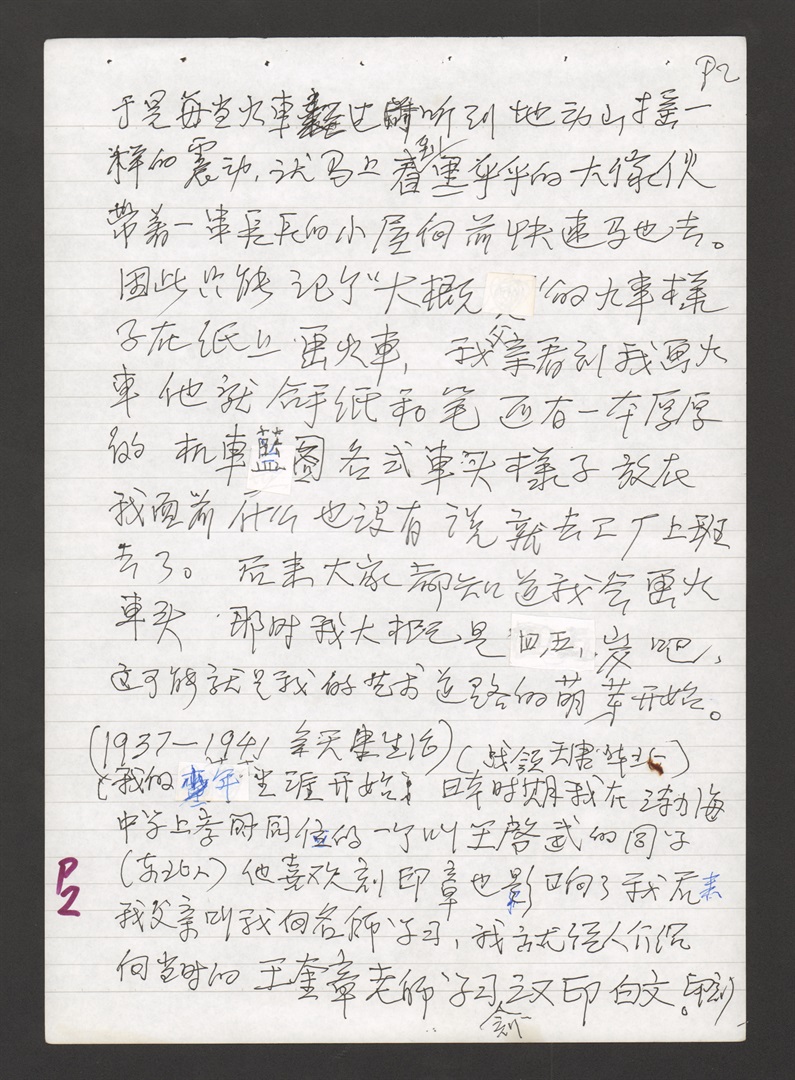 P2
于是每当火車経过時听到地动山摇一
样的震动,就马上看到黑乎乎的大傢伙
带着一串長長的小屋向前快速马也去。
因此只能记个"大概"的火車樣
子在纸上画火車,我父亲看到我画火
車他就拿纸和笔还有一本厚厚
的机車藍图各式車头樣子放在
我面前什么也没有说就去工厂上班
去了。后来大家都知道我会画火
車头 那时我大概是四五岁吧,
这可能就是我的艺术道路的萌芽开始。
(1937—1941 年天唐生活)(占领天唐
(我的童年生涯开始) 日本时期我在渤海
中学上学时同位的一个叫王啓武的同学
(东北人)他喜欢刻印章也影响了我后来
P2
我父亲叫我向名师学习,我就经人介绍
向当时的王奎章老师学习汉印白文。